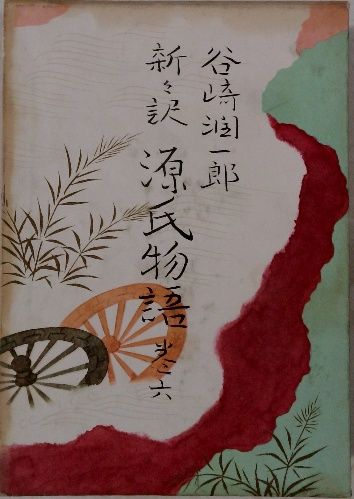 谷崎潤一郎
新々訳
源氏物語 巻六